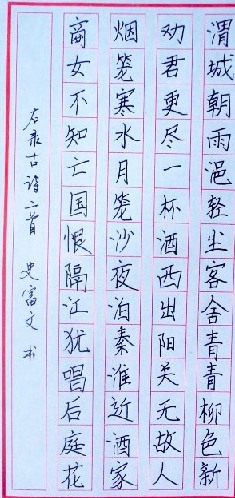 渭城朝雨浥轻尘客舍青青柳色新
劝君更尽一杯酒西出阳关无故人
烟笼寒水月笼沙夜泊秦淮近酒家
商女不知亡国恨隔江犹唱后庭花
右录古诗二首 史富文书